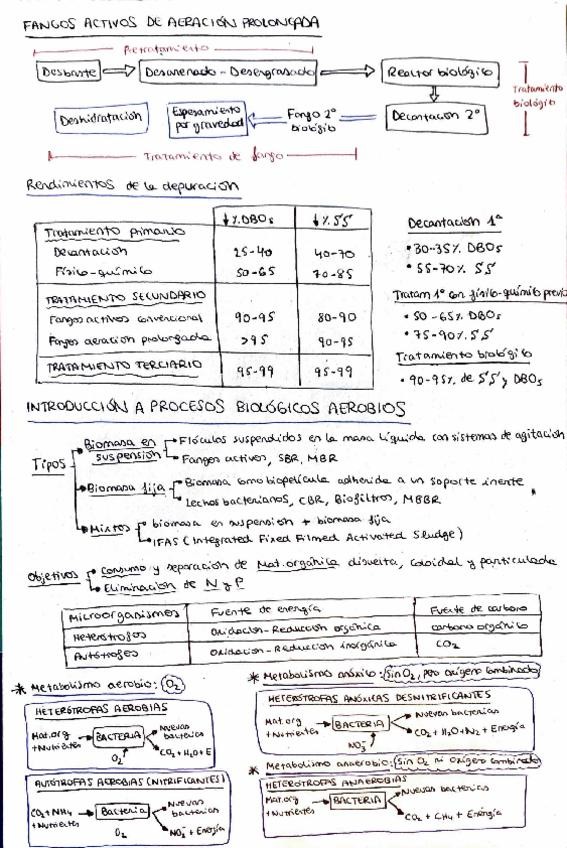 FANGOS ACTIVOS DE AERACIÓN PROLONGADA
Pretratamiento
Desbaste
Desarenado - Desengrasado
Reactor biológico
Tratamiento biológico
Deshidratación
Espesamiento por gravedad
Fango 2º biológico
Decantación 2º
Tratamiento de fango
Rendimientos de la depuración
↓%DBO5 ↓%SS
Tratamiento primario
Decantación 25-40 40-70
Físico-químico 50-65 70-85
TRATAMIENTO SECUNDARIO
Fangos activos convencional 90-95 80-90
Fangos aeración prolongada >95 90-95
TRATAMIENTO TERCIARIO 95-99 95-99
Decantación 1ª
• 30-35% DBO5
• 55-70% SS
Tratam 1º con físico-químico previo
• 50-65% DBO5
• 75-90% SS
Tratamiento biológico
• 90-95% de SS y DBO5
INTRODUCCIÓN A PROCESOS BIOLÓGICOS AEROBIOS
Tipos
Biomasa en suspensión
Flóculos suspendidos en la masa líquida con sistemas de agitación
Fangos activos, SBR, MBR
Biomasa fija
Biomasa como biopelícula adherida a un soporte inerte
Lechos bacterianos, CBR, Biofiltros, MBBR
Mixtos
biomasa en suspensión + biomasa fija
IFAS (Integrated Fixed Filmed Activated Sludge)
Objetivos
Consumo y separación de Mat. orgánica disuelta, coloidal y particulada
Eliminación de N y P
Microorganismos Fuente de energía Fuente de carbono
Heterótrofos Oxidación-Reducción orgánica carbono orgánico
Autótrofos Oxidación-Reducción inorgánica CO2
* Metabolismo aerobio: O2
HETERÓTROFAS AEROBIAS
Mat.org + Nutrientes
BACTERIA
O2
Nuevas bacterias
CO2 + H2O + E
AUTÓTROFAS AEROBIAS (NITRIFICANTES)
CO2 + NH4 + Nutrientes
Bacteria
O2
Nuevas bacterias
NO3- + Energía
* Metabolismo anóxico: Sin O2, pero oxígeno combinado
HETERÓTROFAS ANÓXICAS DESNITRIFICANTES
Mat.org + Nutrientes
BACTERIA
NO3-
Nuevas bacterias
CO2 + H2O + N2 + Energía
* Metabolismo anaerobio: Sin O2 ni Oxígeno combinado
HETERÓTROFAS ANAEROBIAS
Mat.org + Nutrientes
BACTERIA
Nuevas bacterias
CO2 + CH4 + Energía